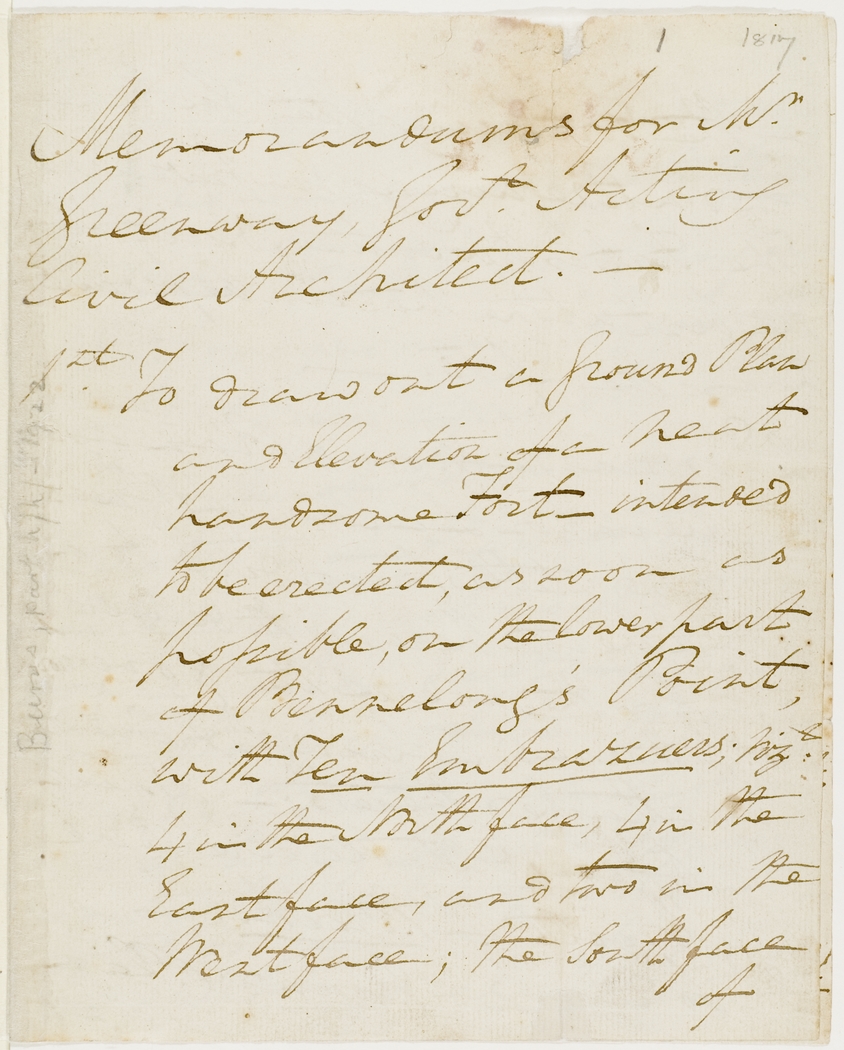 1 1817
Memorandums for Mr.
Greenway, Govt. Acting
Civil Architect. —
1st. To draw out a Ground Plan
and Elevation of a neat
handsome Fort — intended
to be erected, as soon as
possible, on the lower part
of Bennelong's Point,
with Ten Embrazuers; vizt.
4 in the North face, 4 in the
East face, and two in the
West face; the South face
of